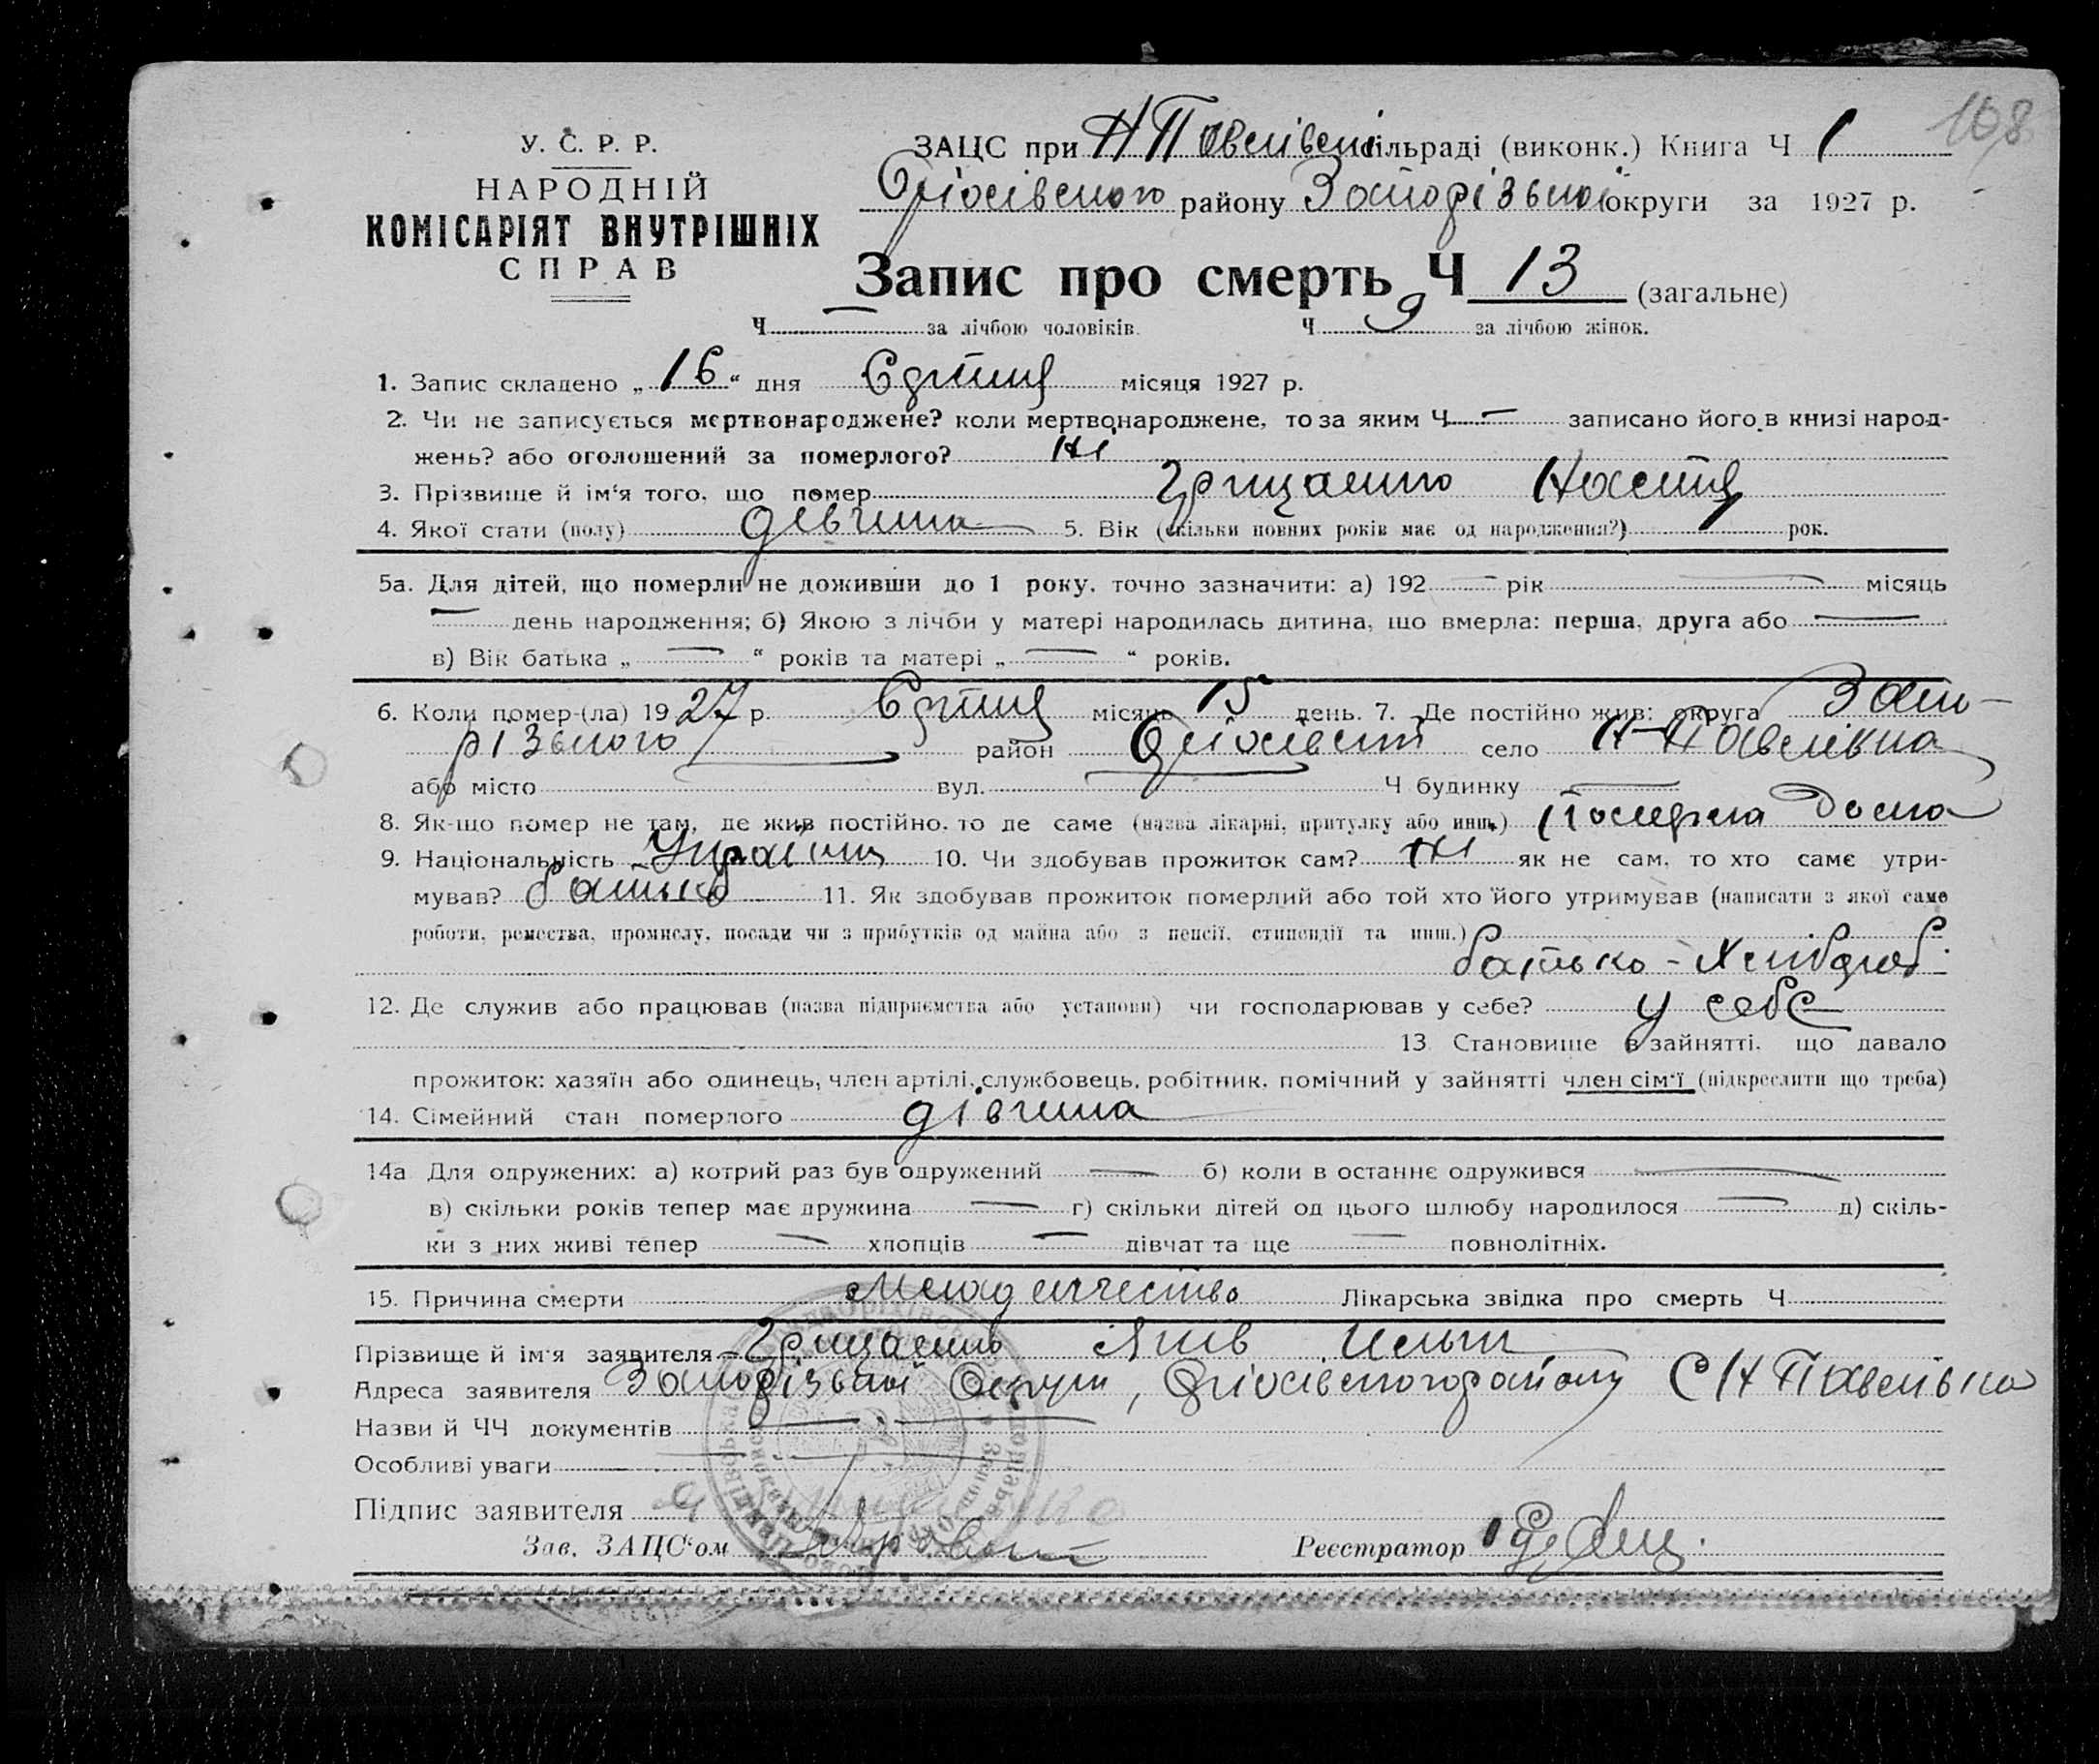 168
У. С. Р. Р.
НАРОДНІЙ
КОМІСАРІЯТ ВНУТРІШНІХ
СПРАВ
ЗАЦС при Н Павлівські сільраді (виконк.) Книга Ч 1
Оріхівського району Запорізької округи за 1927 р.
Запис про смерть Ч 13 (загальне)
Ч — за лічбою чоловіків. Ч 9 за лічбою жінок.
1. Запис складено „ 16 “ дня місяця 1927 р.
2. Чи не записується мертвонароджене? коли мертвонароджене, то за яким Ч — записано його в книзі народ-
жень? або оголошений за померлого? ні
3. Прізвище й ім‘я того, що помер Грищенко Настя
4. Якої стати (полу) дівчина 5. Вік (скільки повних років має од народження?) 1 рок.
5а. Для дітей, що померли не доживши до 1 року, точно зазначити: а) 192 — рік — місяць
— день народження; б) Якою з лічби у матері народилась дитина, що вмерла: перша, друга або —
в) Вік батька „ — “ років та матері „ — “ років.
6. Коли помер-(ла) 1927 р. місяць 15 день. 7. Де постійно жив: округа Запо-
різького район Оріхівськ село Н-Павлівка
або місто — вул. — Ч будинку —
8. Як-що помер не там, де жив постійно, то де саме (назва лікарні, притулку або инш.) Померла дома
9. Національність 10. Чи здобував прожиток сам? ні як не сам, то хто саме утри-
мував? батько 11. Як здобував прожиток померлий або той хто його утримував (написати з якої саме
роботи, ремества, промислу, посади чи з прибутків од майна або з пенсії, стипендії та инш.)
батько - хлібороб
12. Де служив або працював (назва підприємства або установи) чи господарював у себе? у себе
13. Становище в зайнятті, що давало
прожиток: хазяїн або одинець, член артілі, службовець, робітник, помічний у зайнятті член сім‘ї (підкреслити що треба)
14. Сімейний стан померлого дівчина
14а Для одружених: а) котрий раз був одружений — б) коли в останнє одружився —
в) скільки років тепер має дружина — г) скільки дітей од цього шлюбу народилося — д) скіль-
ки з них живі тепер — хлопців — дівчат та ще — повнолітніх.
15. Причина смерти Младенчество Лікарська звідка про смерть Ч
Прізвище й ім‘я заявителя Грищенко Яків
Адреса заявителя Запорізької Округи, Оріхівського району С Н Павлівка
Назви й ЧЧ документів —
Особливі уваги —
Підпис заявителя
Зав. ЗАЦС‘ом Реєстратор